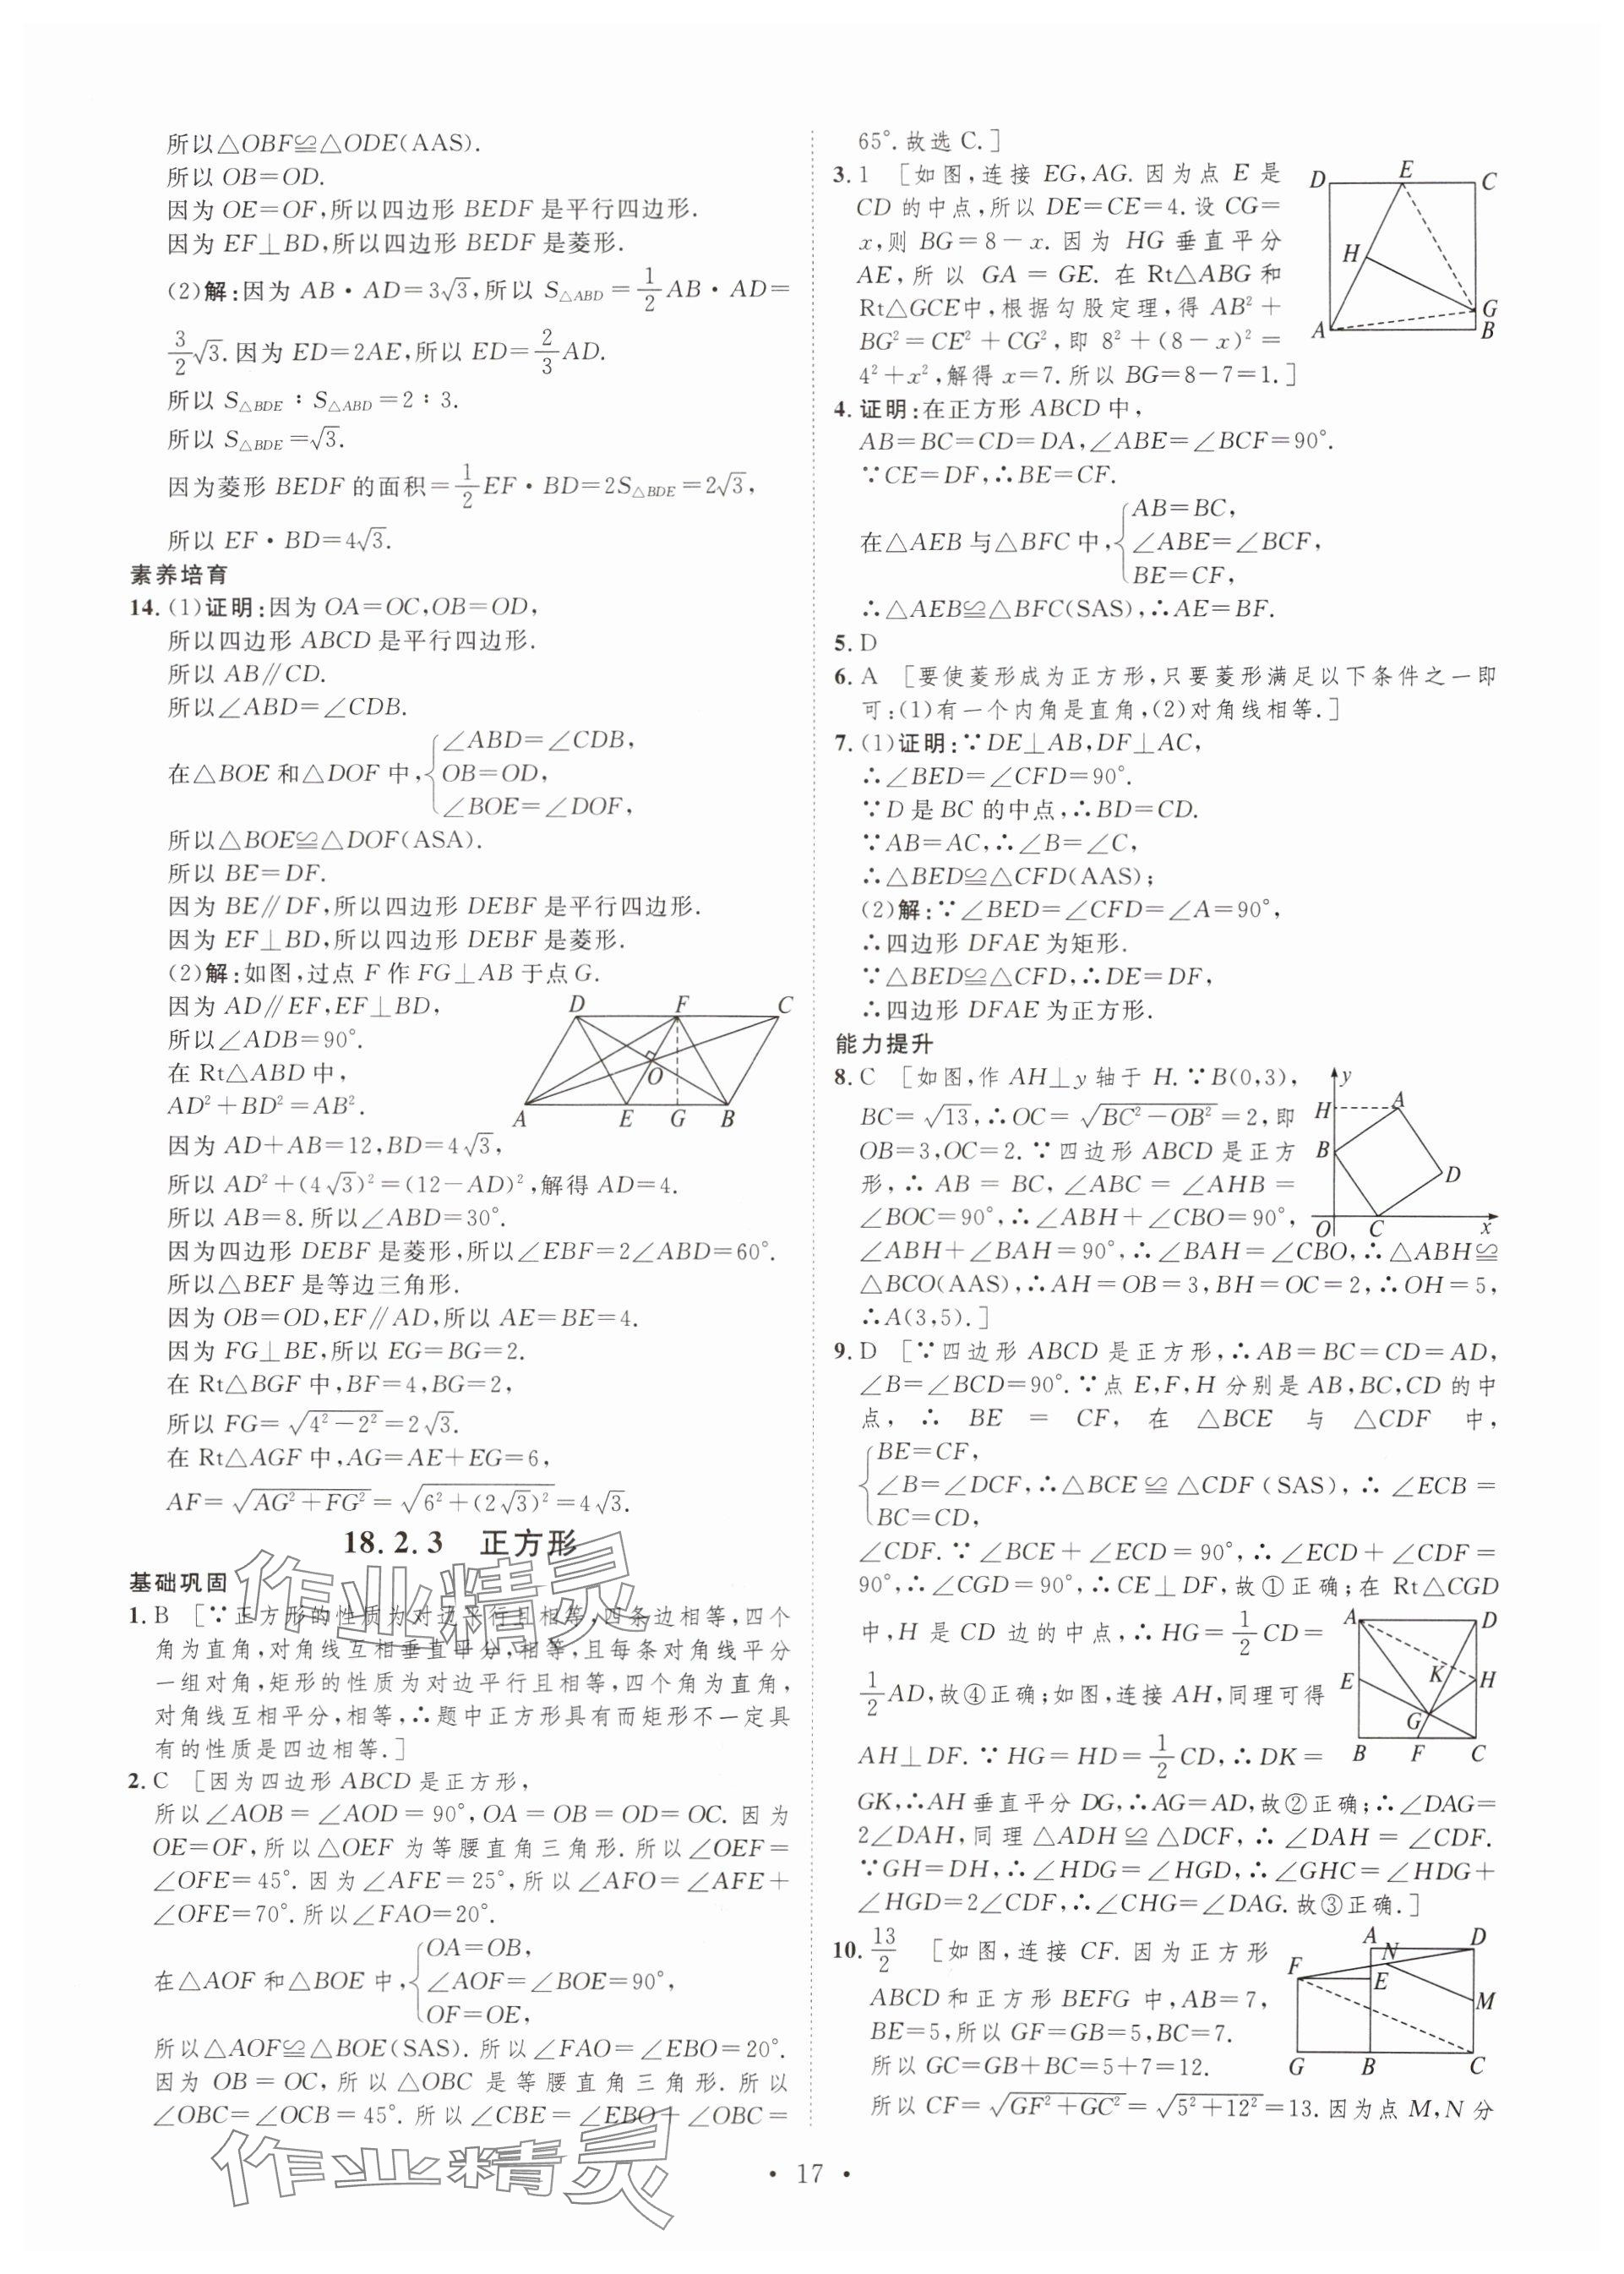 所以△OBF≌△ODE(AAS).
所以 OB=OD.
因为 OE=OF,所以四边形 BEDF 是平行四边形.
因为 EF⊥BD,所以四边形 BEDF 是菱形.
(2)解:因为 AB·AD=3√3,所以 S△ABD=1/2 AB·AD=
3/2√3.因为 ED=2AE,所以 ED=2/3 AD.
所以 S△BDE∶S△ABD=2∶3.
所以 S△BDE=√3.
因为菱形 BEDF 的面积=1/2 EF·BD=2S△BDE=2√3,
所以 EF·BD=4√3.
素养培育
14. (1)证明:因为 OA=OC,OB=OD,
所以四边形 ABCD 是平行四边形.
所以 AB∥CD.
所以∠ABD=∠CDB.
在△BOE 和△DOF 中,{∠ABD=∠CDB,
OB=OD,
∠BOE=∠DOF,
所以△BOE≌△DOF(ASA).
所以 BE=DF.
因为 BE∥DF,所以四边形 DEBF 是平行四边形.
因为 EF⊥BD,所以四边形 DEBF 是菱形.
(2)解:如图,过点 F 作 FG⊥AB 于点 G.
因为 AD∥EF,EF⊥BD,
所以∠ADB=90°.
在 Rt△ABD 中,
AD²+BD²=AB².
D F C
O
A E G B
因为 AD+AB=12,BD=4√3,
所以 AD²+(4√3)²=(12-AD)²,解得 AD=4.
所以 AB=8.所以∠ABD=30°.
因为四边形 DEBF 是菱形,所以∠EBF=2∠ABD=60°.
所以△BEF 是等边三角形.
因为 OB=OD,EF∥AD,所以 AE=BE=4.
因为 FG⊥BE,所以 EG=BG=2.
在 Rt△BGF 中,BF=4,BG=2,
所以 FG=√(4²-2²)=2√3.
在 Rt△AGF 中,AG=AE+EG=6,
AF=√(AG²+FG²)=√(6²+(2√3)²)=4√3.
18.2.3 正方形
基础巩固
1. B [∵正方形的性质为对边平行且相等,四条边相等,四个
角为直角,对角线互相垂直平分,相等,且每条对角线平分
一组对角,矩形的性质为对边平行且相等,四个角为直角,
对角线互相平分,相等,∴题中正方形具有而矩形不一定具
有的性质是四边相等.]
2. C [因为四边形 ABCD 是正方形,
所以∠AOB=∠AOD=90°,OA=OB=OD=OC. 因为
OE=OF,所以△OEF 为等腰直角三角形. 所以∠OEF=
∠OFE=45°. 因为∠AFE=25°,所以∠AFO=∠AFE+
∠OFE=70°.所以∠FAO=20°.
在△AOF 和△BOE 中,{OA=OB,
∠AOF=∠BOE=90°,
OF=OE,
所以△AOF≌△BOE(SAS). 所以∠FAO=∠EBO=20°.
因为 OB=OC,所以△OBC 是等腰直角三角形. 所以
∠OBC=∠OCB=45°. 所以∠CBE=∠EBO+∠OBC=
65°.故选 C.]
3. 1 [如图,连接 EG,AG. 因为点 E 是
CD 的中点,所以 DE=CE=4. 设 CG=
x,则 BG=8-x. 因为 HG 垂直平分
AE,所以 GA=GE. 在 Rt△ABG 和
Rt△GCE中,根据勾股定理,得 AB²+
BG²=CE²+CG²,即 8²+(8-x)²=
4²+x²,解得 x=7. 所以 BG=8-7=1.]
D E C
H
G
A B
4. 证明:在正方形 ABCD 中,
AB=BC=CD=DA,∠ABE=∠BCF=90°.
∵CE=DF,∴BE=CF.
在△AEB 与△BFC 中,{AB=BC,
∠ABE=∠BCF,
BE=CF,
∴△AEB≌△BFC(SAS),∴AE=BF.
5. D
6. A [要使菱形成为正方形,只要菱形满足以下条件之一即
可:(1)有一个内角是直角,(2)对角线相等.]
7. (1)证明:∵DE⊥AB,DF⊥AC,
∴∠BED=∠CFD=90°.
∵D 是 BC 的中点,∴BD=CD.
∵AB=AC,∴∠B=∠C,
∴△BED≌△CFD(AAS);
(2)解:∵∠BED=∠CFD=∠A=90°,
∴四边形 DFAE 为矩形.
∵△BED≌△CFD,∴DE=DF,
∴四边形 DFAE 为正方形.
能力提升
8. C [如图,作 AH⊥y 轴于 H.∵B(0,3),
BC=√13,∴OC=√(BC²-OB²)=2,即
OB=3,OC=2.∵四边形 ABCD 是正方
形,∴AB=BC,∠ABC=∠AHB=
∠BOC=90°,∴∠ABH+∠CBO=90°,
y
H A
B
D
O C x
∠ABH+∠BAH=90°,∴∠BAH=∠CBO,∴△ABH≌
△BCO(AAS),∴AH=OB=3,BH=OC=2,∴OH=5,
∴A(3,5).]
9. D [∵四边形 ABCD 是正方形,∴AB=BC=CD=AD,
∠B=∠BCD=90°.∵点 E,F,H 分别是 AB,BC,CD 的中
点,∴BE=CF,在△BCE 与△CDF 中,
{BE=CF,
∠B=∠DCF,∴△BCE≌△CDF(SAS),∴∠ECB=
BC=CD,
∠CDF.∵∠BCE+∠ECD=90°,∴∠ECD+∠CDF=
90°,∴∠CGD=90°,∴CE⊥DF,故①正确;在 Rt△CGD
中,H 是 CD 边的中点,∴HG=1/2 CD=
1/2 AD,故④正确;如图,连接 AH,同理可得
AH⊥DF.∵HG=HD=1/2 CD,∴DK=
A D
K
E H
G
B F C
GK,∴AH 垂直平分 DG,∴AG=AD,故②正确;∴∠DAG=
2∠DAH,同理△ADH≌△DCF,∴∠DAH=∠CDF.
∵GH=DH,∴∠HDG=∠HGD,∴∠GHC=∠HDG+
∠HGD=2∠CDF,∴∠CHG=∠DAG.故③正确.]
10. 13/2 [如图,连接 CF. 因为正方形
ABCD 和正方形 BEFG 中,AB=7,
BE=5,所以 GF=GB=5,BC=7.
所以 GC=GB+BC=5+7=12.
A D
N
F E
M
G B C
所以 CF=√(GF²+GC²)=√(5²+12²)=13.因为点 M,N 分
· 17 ·
作业精灵
作业精灵